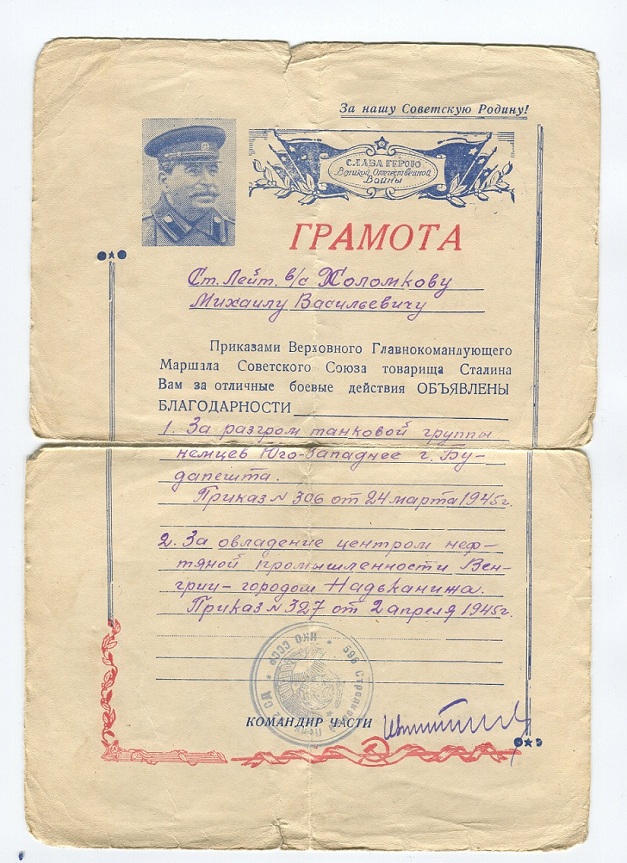 За нашу Советскую Родину!
СЛАВА ГЕРОЮ
Великой Отечественной
Войны
ГРАМОТА
Ст. Лейт. в/с Холомкову
Михаилу Васильевичу
Приказами Верховного Главнокомандующего
Маршала Советского Союза товарища Сталина
Вам за отличные боевые действия ОБЪЯВЛЕНЫ
БЛАГОДАРНОСТИ
1. За разгром танковой группы
немцев Юго-Западнее г. Бу-
дапешта.
Приказ N 306 от 24 марта 1945г.
2. За овладение центром неф-
тяной промышленности Вен-
грии - городом Надьканижа.
Приказ N 327 от 2 апреля 1945г.
НКО СССР * 596 Стрелковый
КОМАНДИР ЧАСТИ